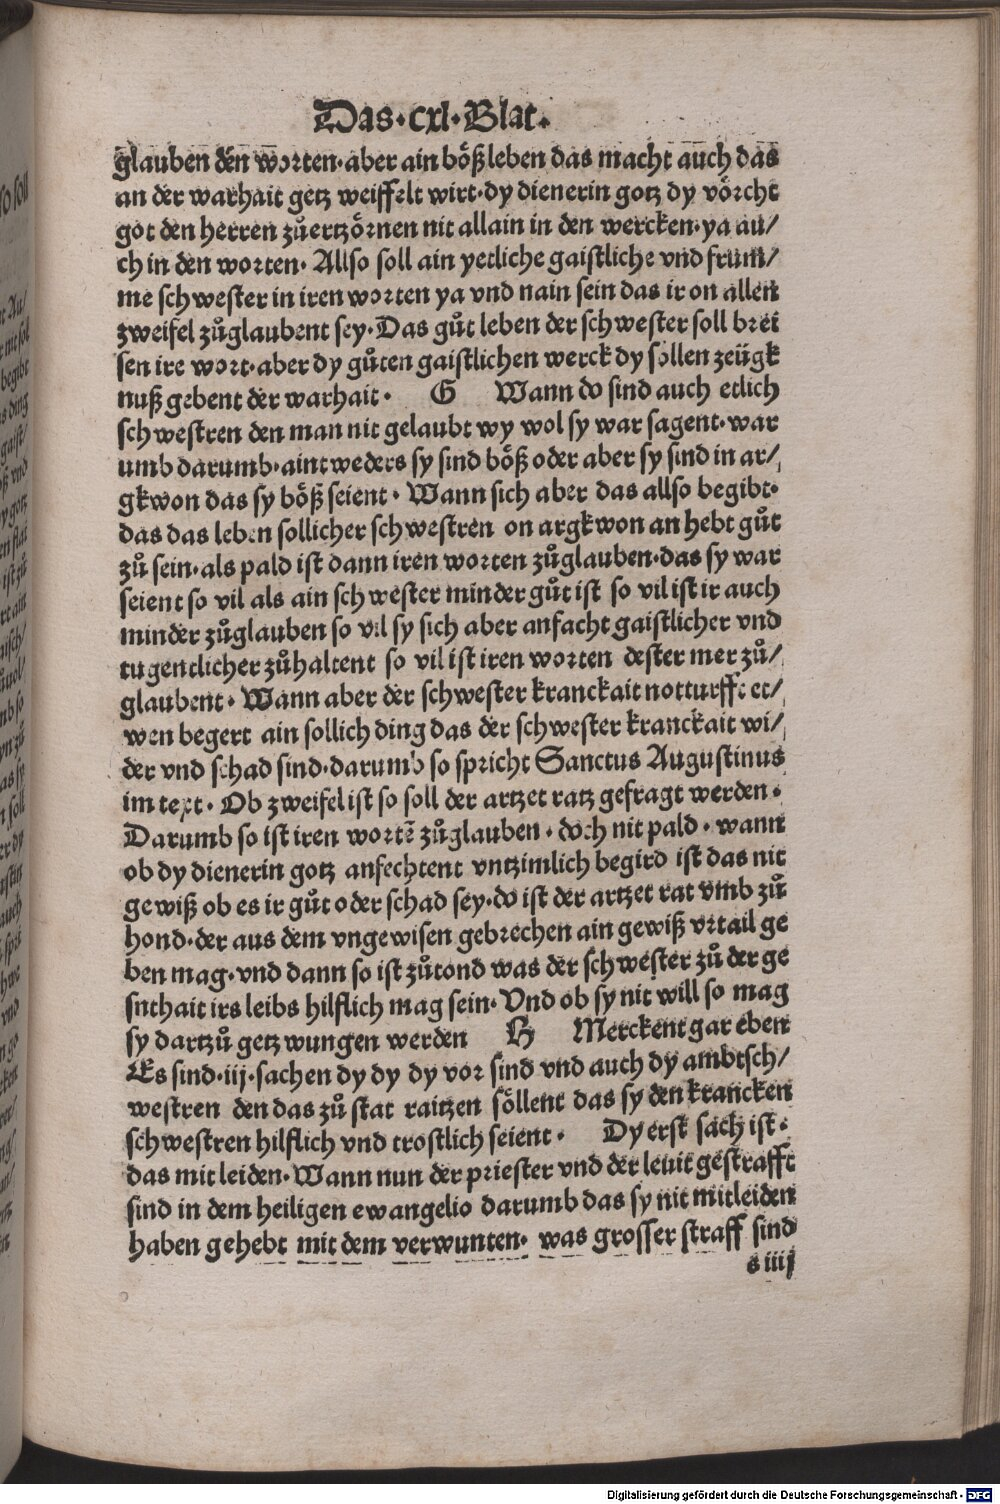 Das·cxl·Blat·
glauben den worten·aber ain bößleben das macht auch das
an der warhait getz weiffelt wirt·dy dienerin gotz dy vörcht
got den herren zůertzörnen nit allain in den wercken·ya au/
ch in den worten· Allso soll ain yetliche gaistliche vnd frum/
me schwester in iren worten ya vnd nain sein das ir on allen
zweifel zůglaubent sey·Das gůt leben der schwester soll brei
sen ire wort·aber dy gůten gaistlichen werck dy sollen zeügk
nuß gebent der warhait· G Wann do sind auch etlich
schwestren den man nit gelaubt wy wol sy war sagent·war
umb darumb·aintweders sy sind böß oder aber sy sind in ar/
gkwon das sy böß seient· Wann sich aber das allso begibt·
das das leben sollicher schwestren on argkwon an hebt gůt
zů sein·als pald ist dann iren worten zůglauben·das sy war
seient so vil als ain schwester minder gůt ist so vil ist ir auch
minder zůglauben so vil sy sich aber anfacht gaistlicher vnd
tugentlicher zůhaltent so vil ist iren worten dester mer zů/
glaubent· Wann aber der schwester kranckait notturfft et/
wen begert ain sollich ding das der schwester kranckait wi/
der vnd schad sind·darumb so spricht Sanctus Augustinus
im text· Ob zweifel ist so soll der artzet ratz gefragt werden·
Darumb so ist iren wortē zůglauben·doch nit pald·wann
ob dy dienerin gotz anfechtent vntzimlich begird ist das nit
gewiß ob es ir gůt oder schad sey·do ist der artzet rat vmb zů
hond·der aus dem vngewisen gebrechen ain gewiß vrtail ge
ben mag·vnd dann so ist zůtond was der schwester zů der ge
snthait irs leibs hilflich mag sein· Vnd ob sy nit will so mag
sy dartzů getzwungen werden H Merckent gar eben
Es sind·iij·sachen dy dy dy vor sind vnd auch dy ambtsch/
westren den das zů stat raitzen söllent das sy den krancken
schwestren hilflich vnd trostlich seient· Dy erst sach ist·
das mit leiden·Wann nun der priester vnd der leuit gestrafft
sind in dem heiligen ewangelio darumb das sy nit mitleiden
haben gehebt mit dem verwunten· was grosser straff sind
s iiij
Digitalisierung gefördert durch die Deutsche Forschungsgemeinschaft - DFG